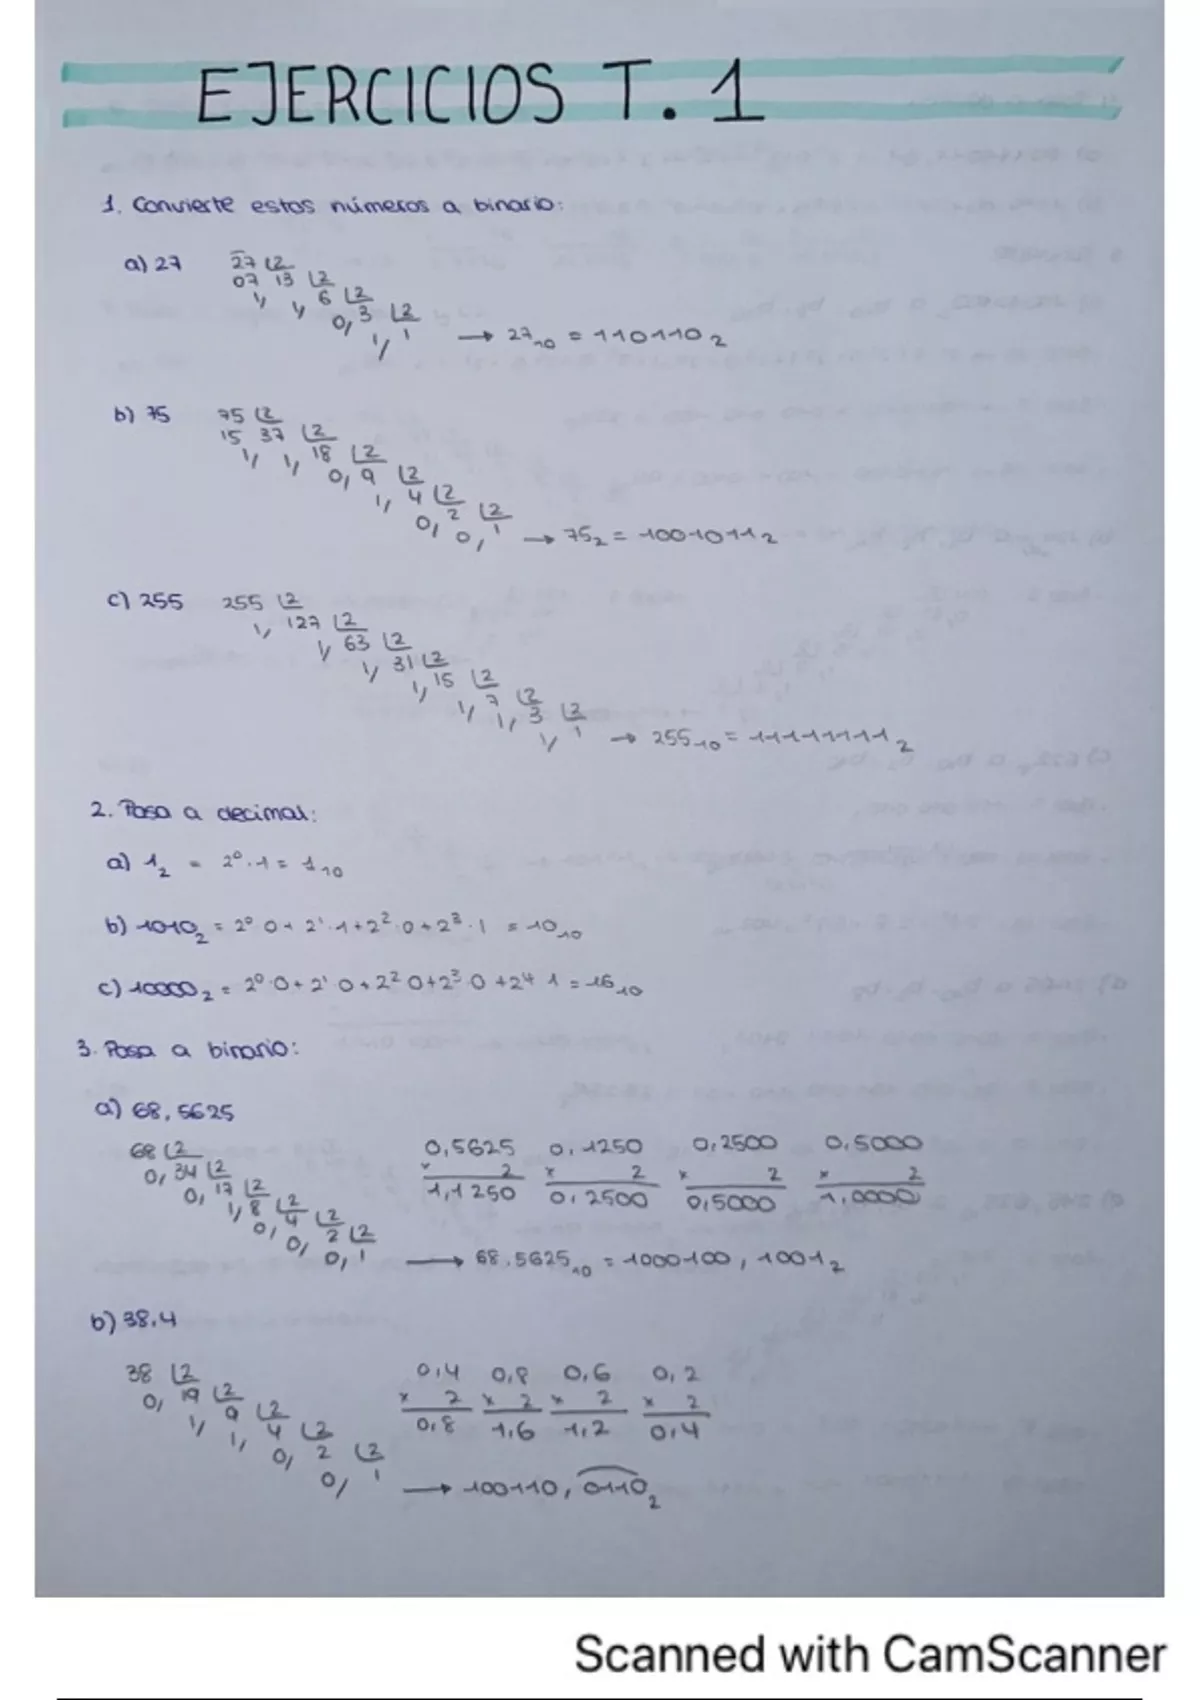 EJERCICIOS T. 1
1. Convierte estos números a binario:
a) 27
27 2
07 13 2
1, 1, 6 2
0, 3 2
1, 1
→ 27₁₀ = 110110₂
b) 75
75 2
15 37 2
1, 1, 18 2
0, 9 2
1, 4 2
0, 2 2
0, 1
→ 75₂ = 1001011₂
c) 255
255 2
1, 127 2
1, 63 2
1, 31 2
1, 15 2
1, 7 2
1, 3 2
1, 1
→ 255₁₀ = 11111111₂
2. Pasa a decimal:
a) 1₂ = 2⁰·1 = 1₁₀
b) 1010₂ = 2⁰ 0 + 2¹·1 + 2²·0 + 2³·1 = 10₁₀
c) 10000₂ = 2⁰·0 + 2¹ 0 + 2² 0 + 2³·0 + 2⁴ 1 = 16₁₀
3. Pasa a binario:
a) 68,5625
68 2
0, 34 2
0, 17 2
1, 8 2
0, 4 2
0, 2 2
0, 1
0,5625 0,1250 0,2500 0,5000
x 2 x 2 x 2 x 2
1,1250 0,2500 0,5000 1,0000
→ 68,5625₁₀ = 1000100, 1001₂
b) 38,4
38 2
0, 19 2
1, 9 2
1, 4 2
0, 2 2
0, 1
0,4 0,8 0,6 0,2
x 2 x 2 x 2 x 2
0,8 1,6 1,2 0,4
→ 100110, 0110₂
Scanned with CamScanner